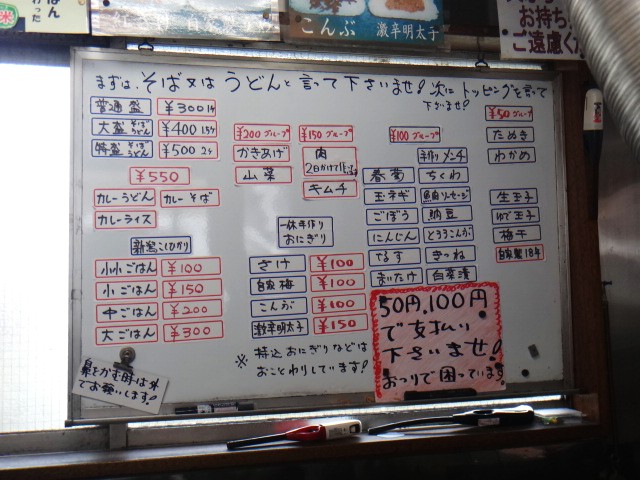 こんぶ
激辛明太子
お持ち
ご遠慮く
まずは、そば又は うどんと言って下さいませ! 次にトッピングを言って
下さいませ!
普通盛 ¥300 1ケ
大盛 そば うどん ¥400 1.5ケ
特盛 そば うどん ¥500 2ケ
¥550
カレーうどん カレーそば
カレーライス
新潟こしひかり
小小ごはん ¥100
小ごはん ¥150
中ごはん ¥200
大ごはん ¥300
¥200グループ
かきあげ
山菜
¥150グループ
肉
キムチ
一休手作り
おにぎり
さけ ¥100
自家梅 ¥100
こんぶ ¥100
激辛明太子 ¥150
※持込おにぎりなどは
おことわりしています!
¥100グループ
手作りメンチ
春菊 ちくわ
玉ネギ 魚肉ソーセージ
ごぼう 納豆
にんじん とろろこんぶ
なす きつね
まいたけ 白菜漬
¥50グループ
たぬき
わかめ
生玉子
ゆで玉子
梅干
50円,100円
で支払い
下さいませ!
おつりで困っています!
鼻をかむ時は外
でお願いします!